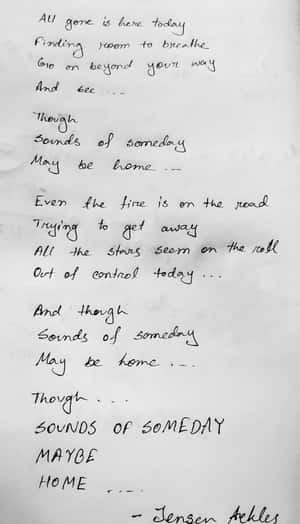 All gone is here today
Finding room to breathe
Go on beyond your way
And see ...
Though
Sounds of someday
May be home ...
Even the fire is on the road
Trying to get away
All the stars seem on the roll
Out of control today ...
And though
Sounds of someday
May be home ...
Though ...
SOUNDS OF SOMEDAY
MAYBE
HOME ....
- Jensen Ackles